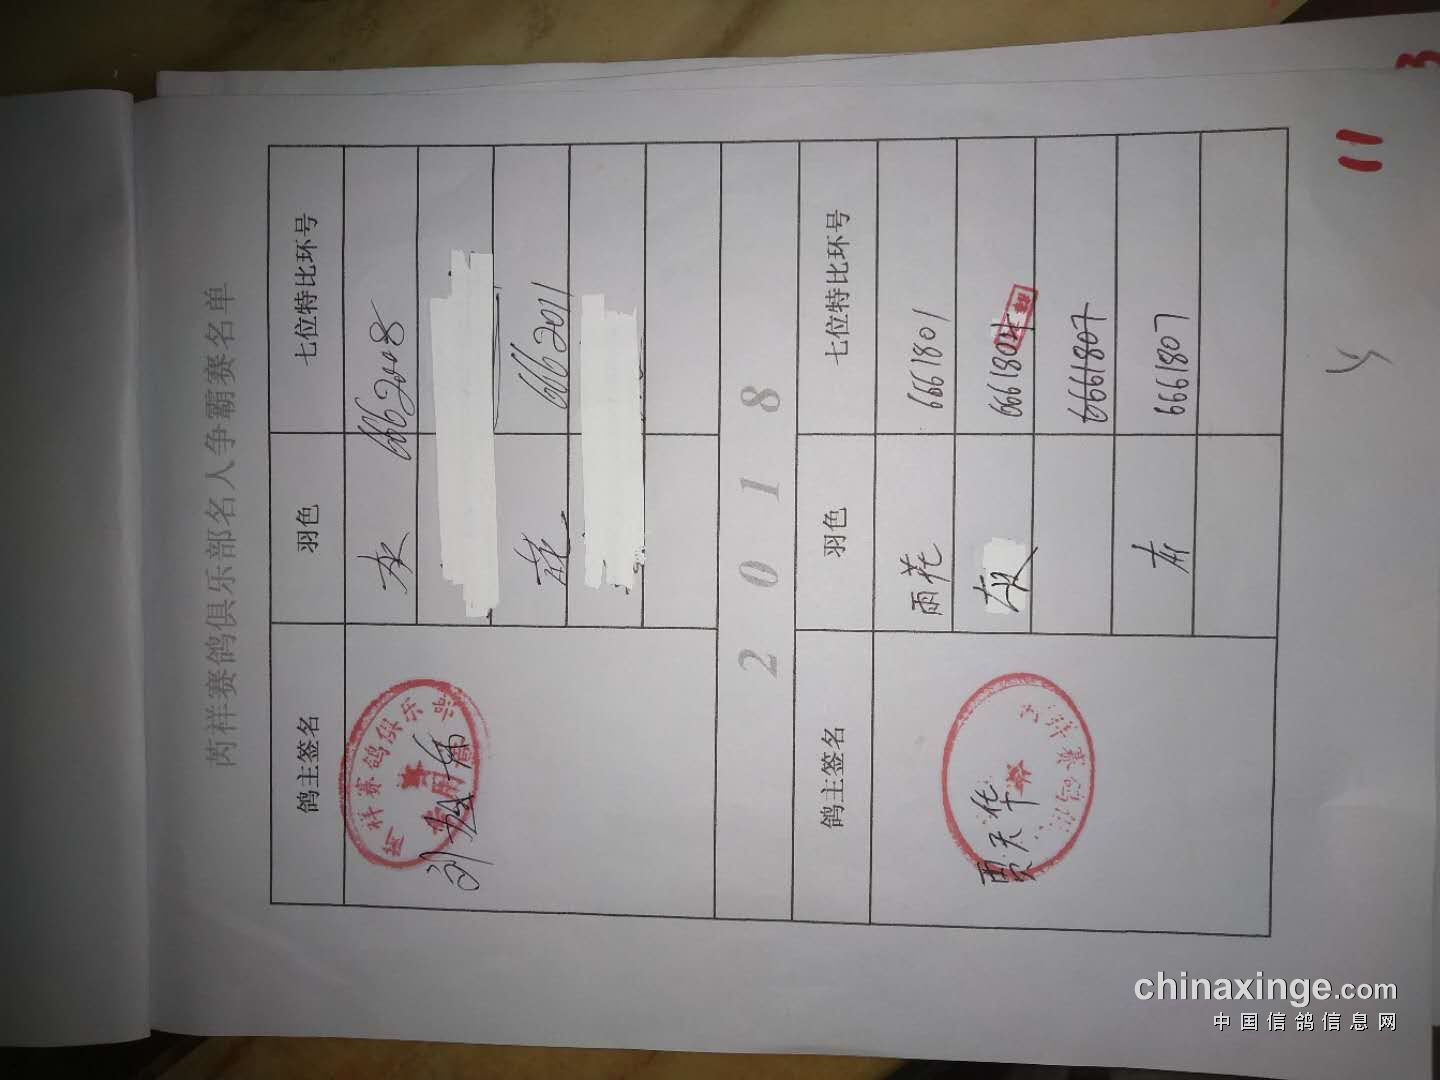 芮祥赛鸽俱乐部名人争霸赛名单
鸽主签名 羽色 七位特比环号
灰 6662008
花 6662011
祥赛鸽俱乐部
专用章
2 0 1 8
鸽主签名 羽色 七位特比环号
贾天华
雨花 6661801
灰 66618
6661807
灰 6661807
祥赛鸽俱
11
3
chinaxinge.com
中国信鸽信息网